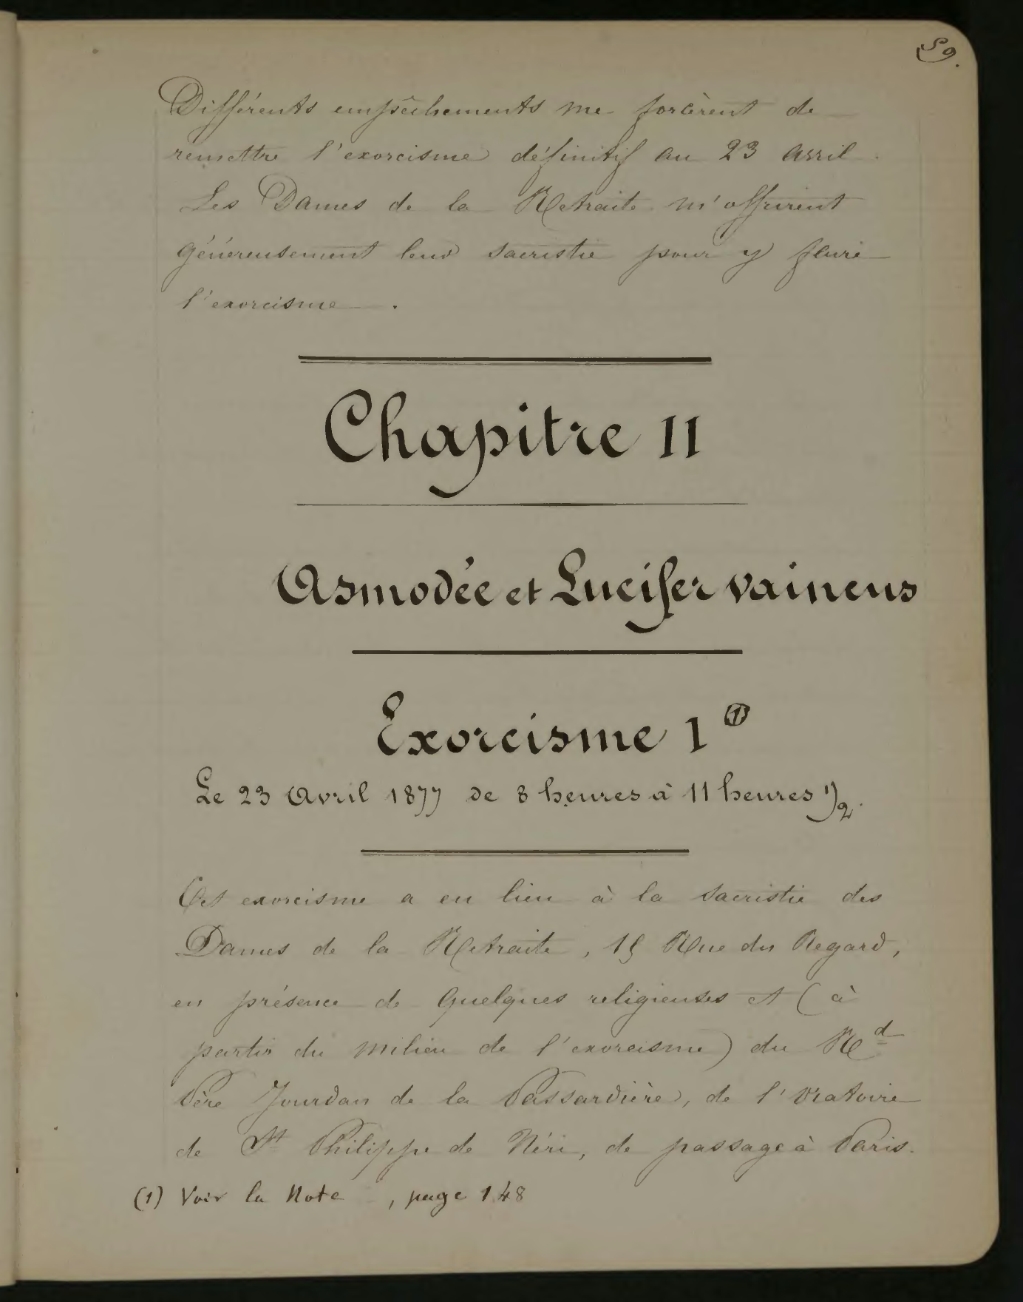 59.
Différents empêchements me forcèrent de
remettre l'exorcisme définitif au 23 avril.
Les Dames de la Retraite m'offrirent
généreusement leur sacristie pour y faire
l'exorcisme.
Chapitre II
Asmodée et Lucifer vaincus
Exorcisme I (1)
Le 23 Avril 1877 de 8 heures à 11 heures 1/2.
Cet exorcisme a eu lieu à la sacristie des
Dames de la Retraite, 15 Rue du Regard,
en présence de quelques religieuses et (à
partir du milieu de l'exorcisme) du Rd
Père Jourdan de la Passardière, de l'Oratoire
de St Philippe de Néri, de passage à Paris.
(1) Voir la Note , page 148